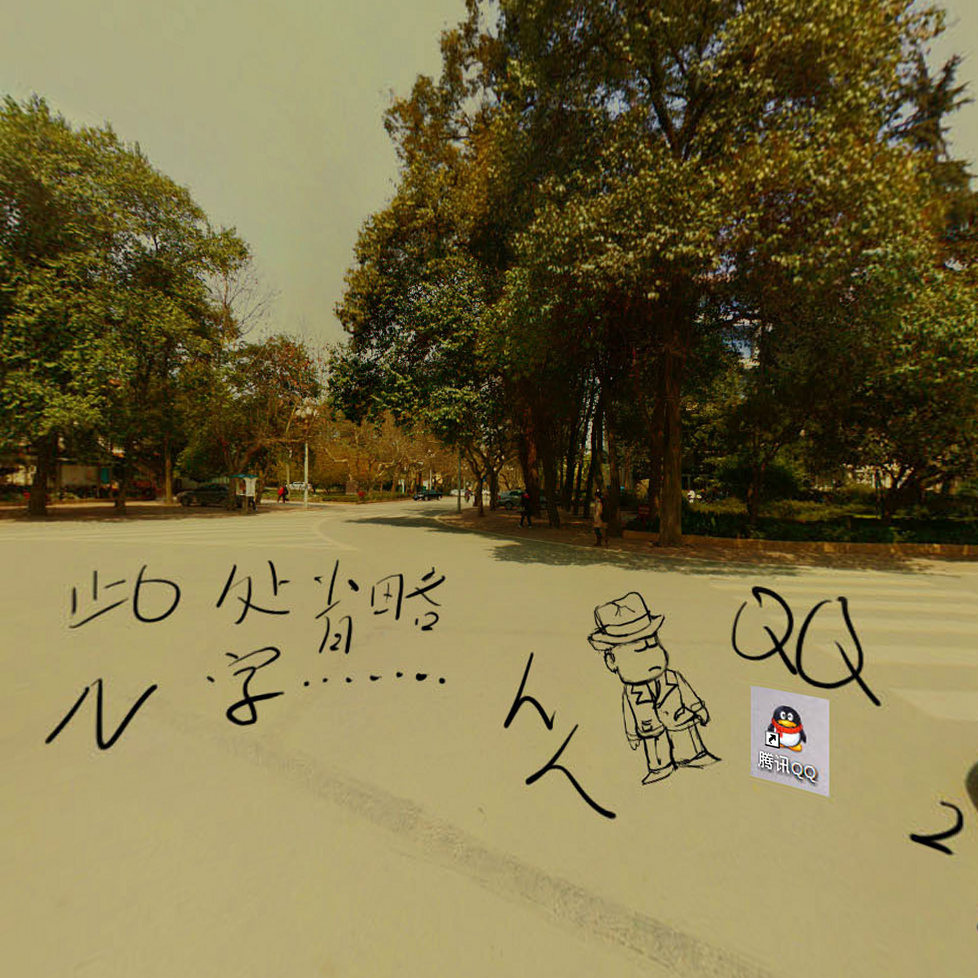 此处省略
N字……
人人
QQ
腾讯QQ